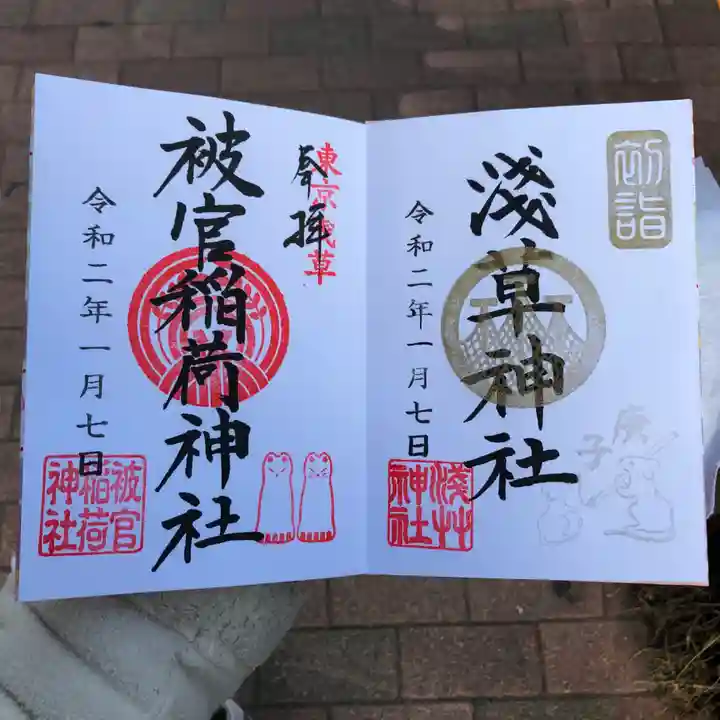 初詣
淺草神社
令和二年一月七日
淺草神社
庚子
東京浅草
奉拝
被官稲荷神社
令和二年一月七日
被官稲荷神社